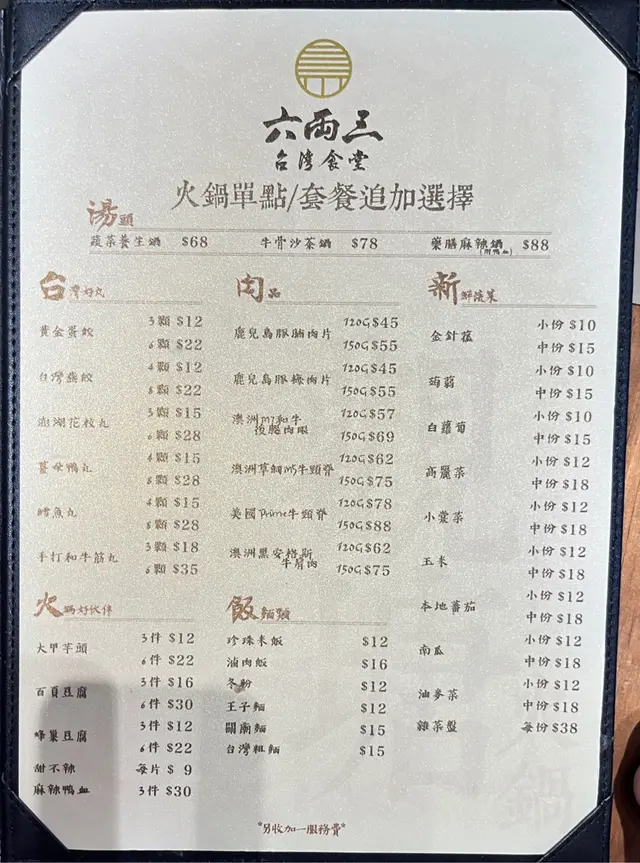 六両三
台灣食堂
火鍋單點/套餐追加選擇
湯頭
蔬菜養生鍋 $68 牛骨沙茶鍋 $78 藥膳麻辣鍋(附鴨血) $88
台灣好丸
黃金蛋餃 3顆 $12
6顆 $22
台灣燕餃 4顆 $12
8顆 $22
澎湖花枝丸 3顆 $15
6顆 $28
薑母鴨丸 4顆 $15
8顆 $28
鱈魚丸 4顆 $15
8顆 $28
手打和牛筋丸 3顆 $18
6顆 $35
火鍋好伙伴
大甲芋頭 3件 $12
6件 $22
百頁豆腐 3件 $16
6件 $30
蜂巢豆腐 3件 $12
6件 $22
甜不辣 每片 $ 9
麻辣鴨血 3件 $30
肉品
鹿兒島豚脯肉片 120G $45
150G $55
鹿兒島豚梅肉片 120G $45
150G $55
澳洲m7和牛後腿肉眼 120G $57
150G $69
澳洲草飼m5牛頸脊 120G $62
150G $75
美國Prime牛頸脊 120G $78
150G $88
澳洲黑安格斯牛肩肉 120G $62
150G $75
飯麵類
珍珠米飯 $12
滷肉飯 $16
冬粉 $12
王子麵 $12
關廟麵 $15
台灣粗麵 $15
新鮮蔬菜
金針菇 小份 $10
中份 $15
蒟蒻 小份 $10
中份 $15
白蘿蔔 小份 $10
中份 $15
高麗菜 小份 $12
中份 $18
小棠菜 小份 $12
中份 $18
玉米 小份 $12
中份 $18
本地蕃茄 小份 $12
中份 $18
南瓜 小份 $12
中份 $18
油麥菜 小份 $12
中份 $18
雜菜盤 每份 $38
*另收加一服務費*